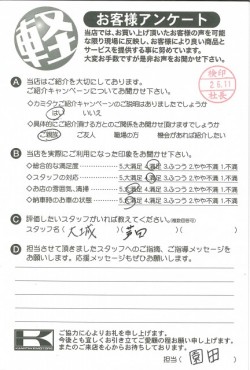 軽
お客様アンケート
当店では、お買い上げ頂いたお客様の声を可能
な限り現場に反映し、お客様により良い商品と
サービスを提供する事に努めています。
大変お手数ですが是非お声をお聞かせ下さい。
検印
2.6.11
社長
A 当店はご紹介を大切にしております。
ご紹介キャンペーンについてお聞かせ下さい。
・カミタケご紹介キャンペーンのご説明はありましたでしょうか
はい いいえ
・具体的にご紹介頂ける方とのご関係をお聞かせ頂けますでしょうか
ご親族 ご友人 職場の方 機会があれば紹介したい
B 当店を実際にご利用になった印象をお聞かせ下さい。
◇総合的な満足度 5.大満足 4.満足 3.ふつう 2.やや不満 1.不満
◇スタッフの対応 5.大満足 4.満足 3.ふつう 2.やや不満 1.不満
◇お店の雰囲気、清掃 5.大満足 4.満足 3.ふつう 2.やや不満 1.不満
◇納車時のお車の状態 5.大満足 4.満足 3.ふつう 2.やや不満 1.不満
C 評価したいスタッフがいれば教えてください。(複数回答可)
スタッフ名( 大城
D 担当させて頂きましたスタッフへのご指摘、ご指導メッセージを
お願いします。応援メッセージもぜひお願いします。
K
ご協力に心よりお礼を申し上げます。
今後とも宜しくお引き立てご愛顧の程お願い申し上げます。
またのご来店を心からお待ちしております。
担当( 園田 )